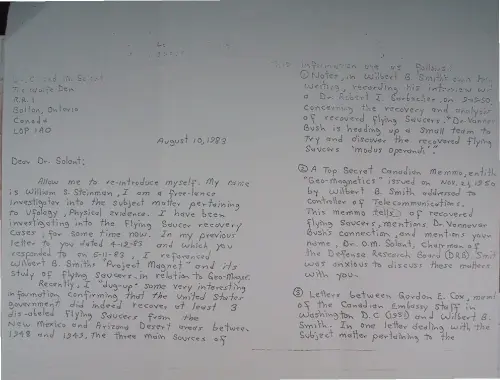 The Wolfe Den
R.R.1
Bolton, Ontario
Canada
LOP 1AO
August 10, 1983
Dear Dr. Solant;
Allow me to re-introduce myself. My name
is William S. Steinman, I am a free-lance
investigator into the subject matter pertaining
to Ufology, Physical evidence. I have been
investigating into the Flying Saucer recovery
Cases for some time now. In my previous
letter to you dated 4-18-83 and which you
responded to on 5-11-83, I referenced
Wilbert B. Smith's "Project Magnet" and its
study of flying saucers in relation to Geo-Magnetic
Recently, I "dug-up" some very interesting
information confirming that the United States
government did indeed recover at least 3
disabled flying Saucers from the
New Mexico and Arizona Desert areas between
1948 and 1949. The three main sources of
information are as follows:
① Notes, in Wilbert B. Smith's own hand
writing, recording his interview with
a Dr. Robert I. Sarbacher, on
concerning the recovery and analysis
of recovered flying saucers. "Dr. Vannevar
Bush is heading up a small team to
try and discover the recovered flying
saucers 'modus operandi'".
② A Top Secret Canadian Memo, entitl
"Geo-magnetics" issued on Nov. 21, 1950
by Wilbert B. Smith addressed to
Controller of Telecommunications.
This memo tells of recovered
flying saucers, mentions Dr. Vannevar
Bush's connection, and mentions your
name, Dr. O.M. Solant, Chairman of
the Defense Research Board (DRB). Smit
was anxious to discuss these matters
with you.
③ Letters between Gordon E. Cox, mem
of the Canadian Embassy Staff in
Washington D.C (1951) and Wilbert B.
Smith. In one letter dealing with the
Subject matter pertaining to the